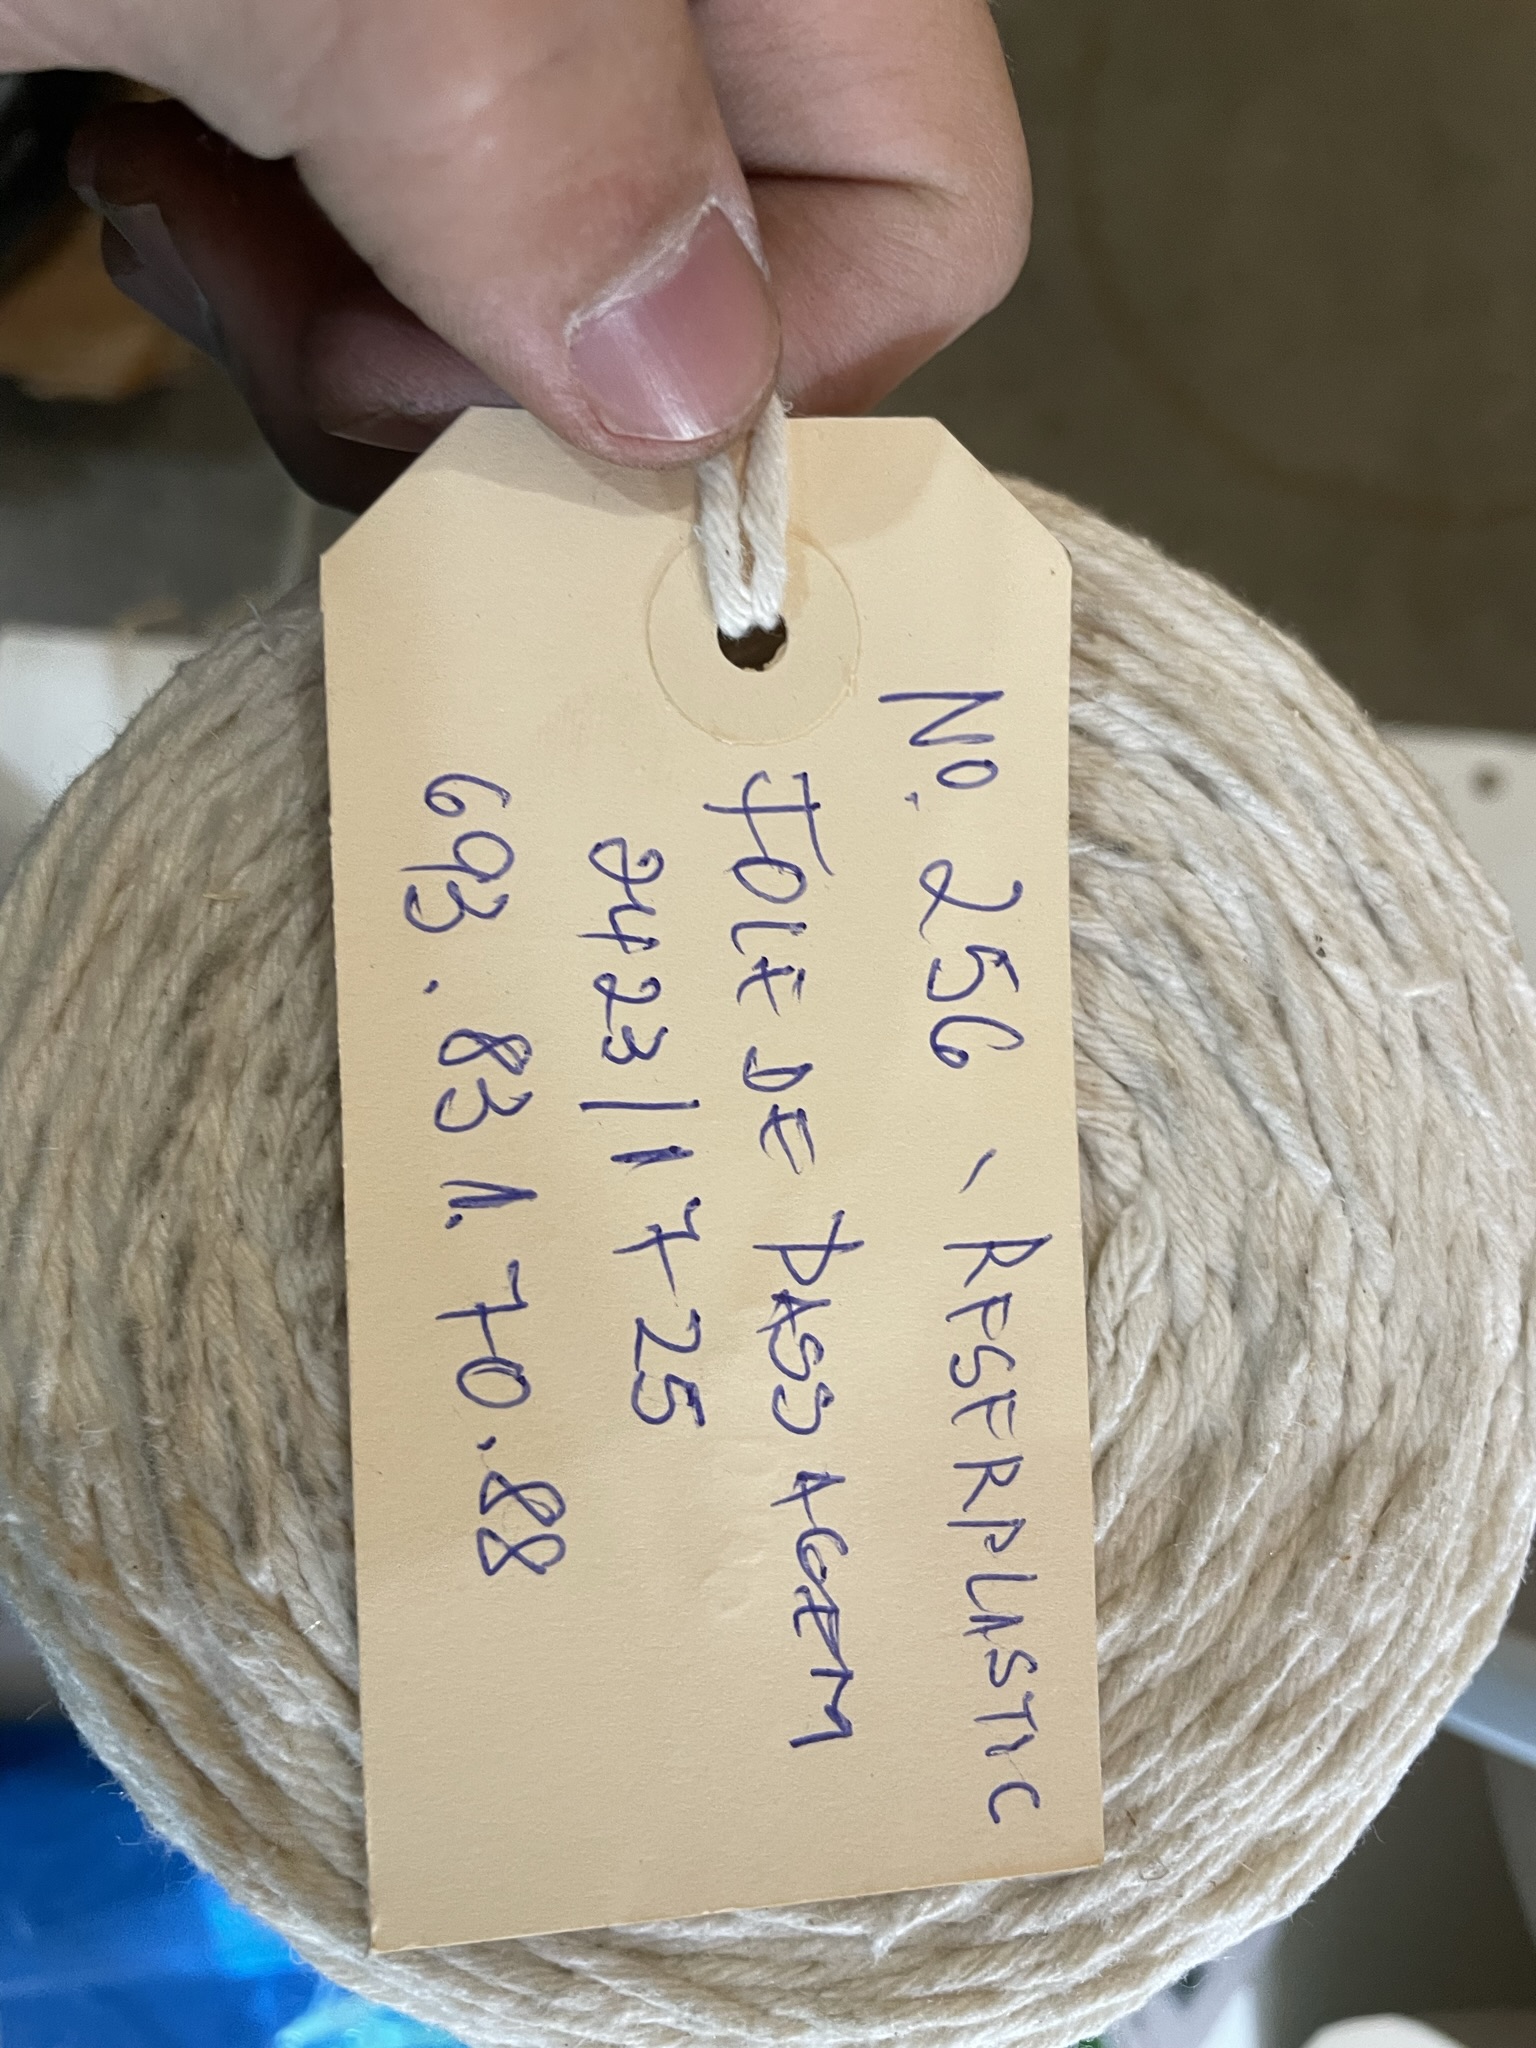 No. 256 \ RESERPLASTIC
TOLE DE PASSAGEM
2423/17-25
693.831.70.88